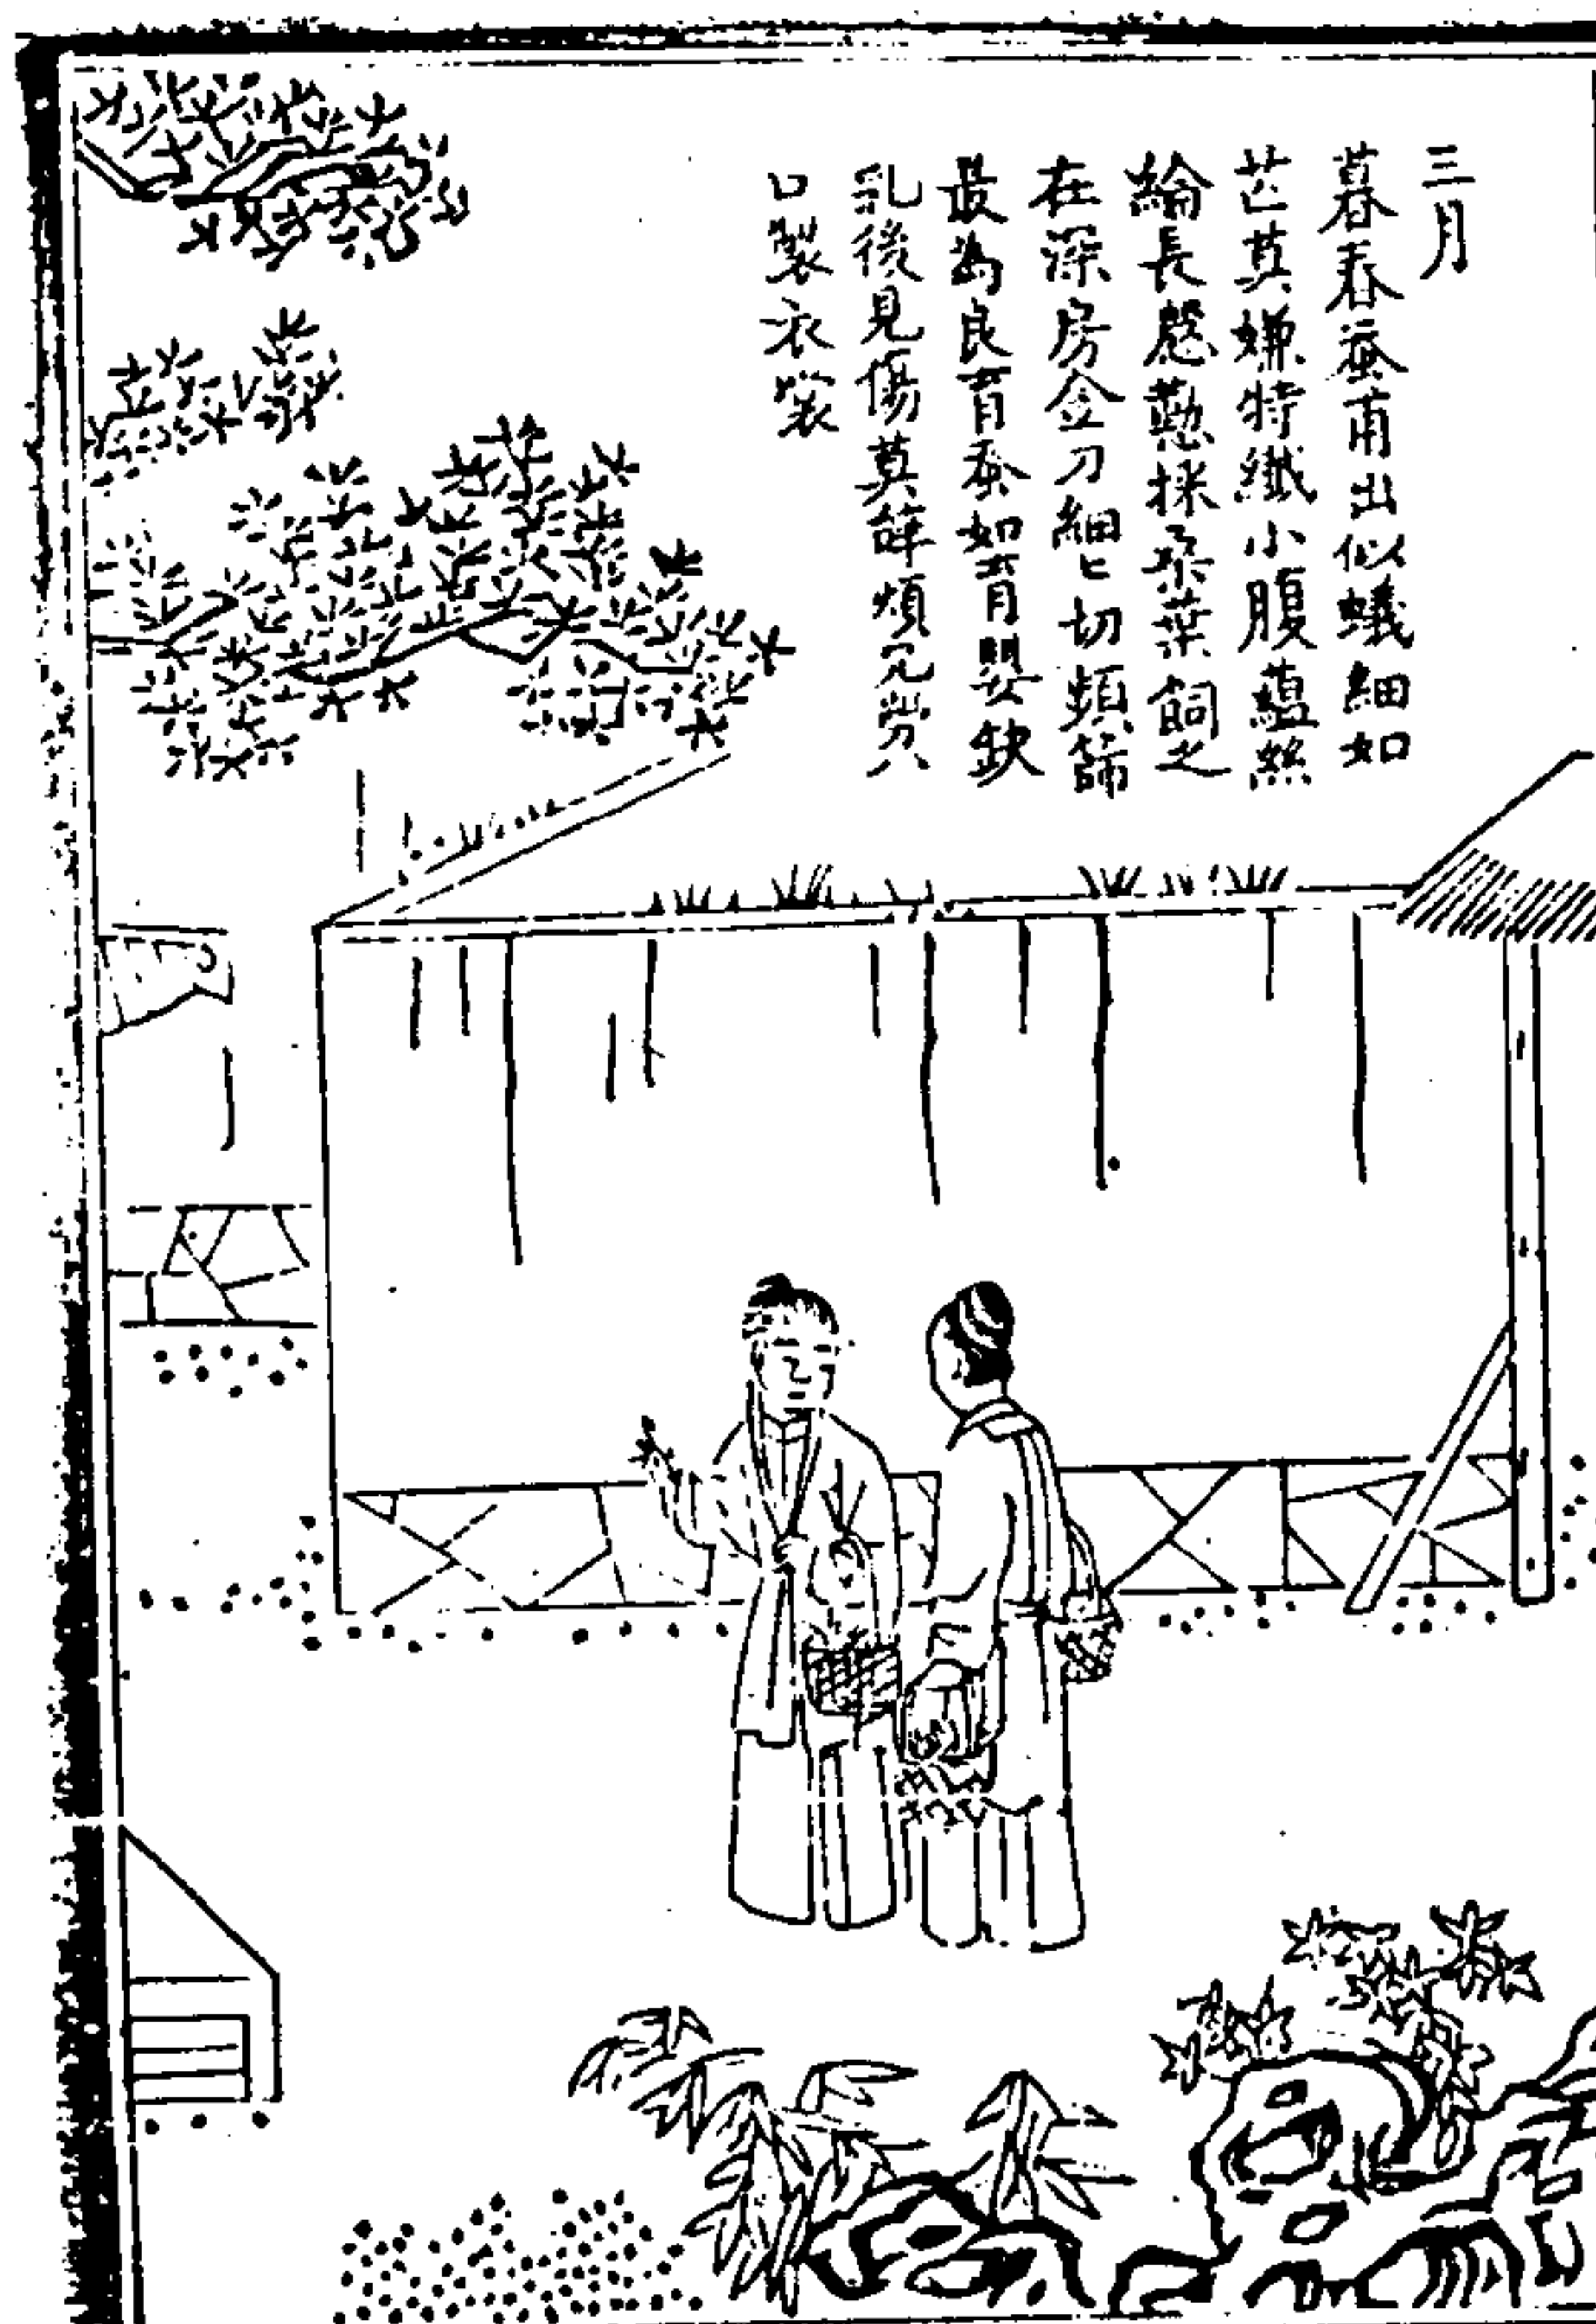 三月
暮春蚕甫出似蟻細如
芒莫嫌特纖小腹蘊絲
綸長慇懃採桑葉飼之
在深房金刀細匕切頻篩
最為良育蚕如育嬰缺
乳後見傷莫辞煩冗勞入
口製衣裳